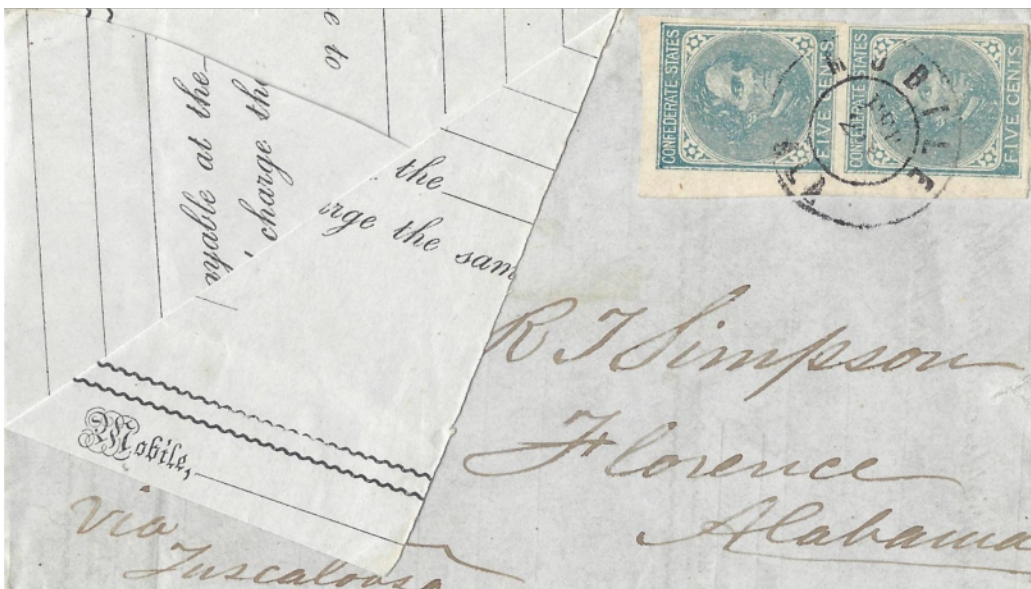 yable at the
charge the
e
to
the
rge the sam
Mobile,
CONFEDERATE STATES
FIVE CENTS
CONFEDERATE STATES
FIVE CENTS
MOBILE ALA
R T Simpson
Florence
Alabama
via
Tuscaloosa